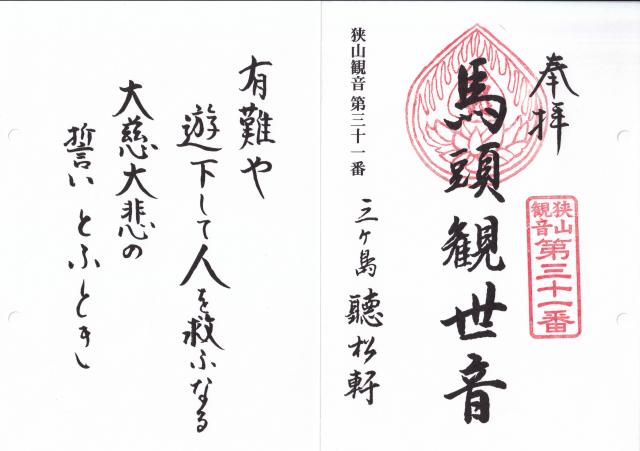 奉拝
狭山
観音
第三十一番
馬頭観世音
狭山観音 第三十一番
三ヶ島 聽松軒
有難や
遊下して人を救ふなる
大慈大悲の
誓いとふときし